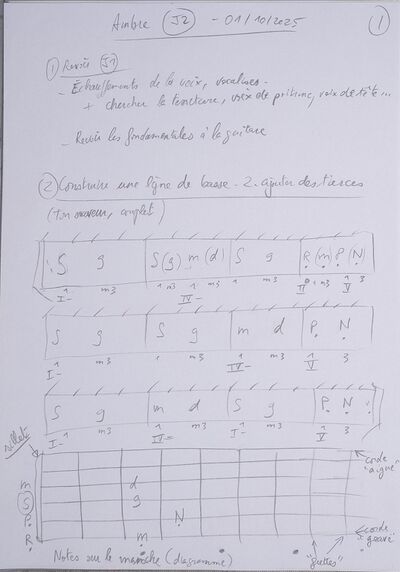 Ambre J2 - 01/10/2025
1
① Revoir J1
- Échauffements de la voix, vocalises.
+ chercher la tessiture, voix de poitrine, voix de tête...
- Revoir les fondamentales à la guitare
② Construire une ligne de basse - 2. ajouter des tierces
(ton mineur, couplet)
S g S(g) m(d) S g R(m) P(N)
1 m3 1 m3 1 m3 1 m3 1 3
I- IV- I- II V
S g S g m d P N
1 m3 1 m3 1 m3 1 3
I- IV- V
S g m d S g P N
1 m3 1 m3 1 m3 1 3
I- IV- I- V
sillet
corde "aiguë"
m d
S g
P N
R m
corde "grave"
Notes sur le manche (diagramme)
"frettes"